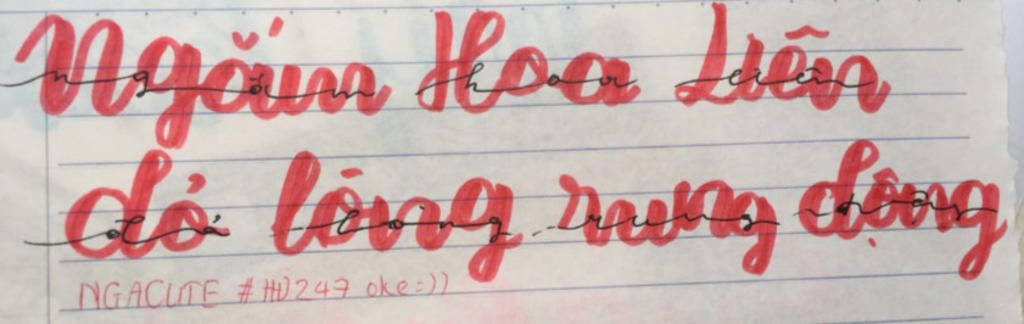 Ngắm Hoa Liên
đỏ lòng rung động
NGACUTE #HD247 oke=))